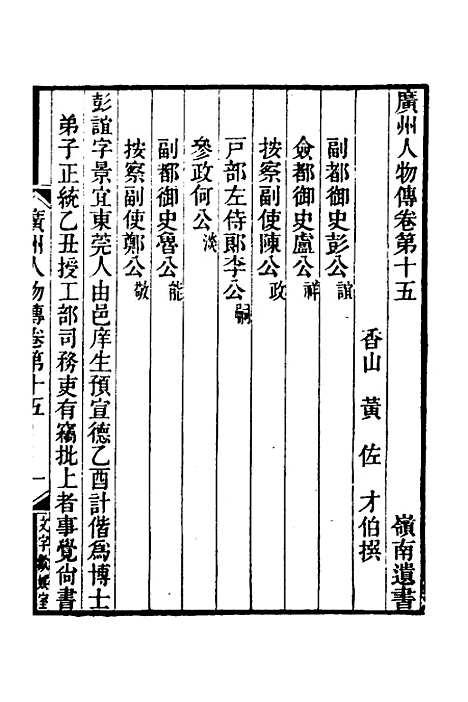 廣州人物傳卷第十五 嶺南遺書
香山 黃 佐 才伯撰
副都御史彭公誼
僉都御史盧公祥
按察副使陳公政
戸部左侍郎李公嗣
參政何公淡
副都御史魯公能
按察副使鄭公敬
彭誼字景宜東莞人由邑庠生預宣德乙酉計偕爲博士
弟子正統乙丑授工部司務吏有竊批上者事覺尙書
廣州人物傳卷第十五 一
文字歡娛室